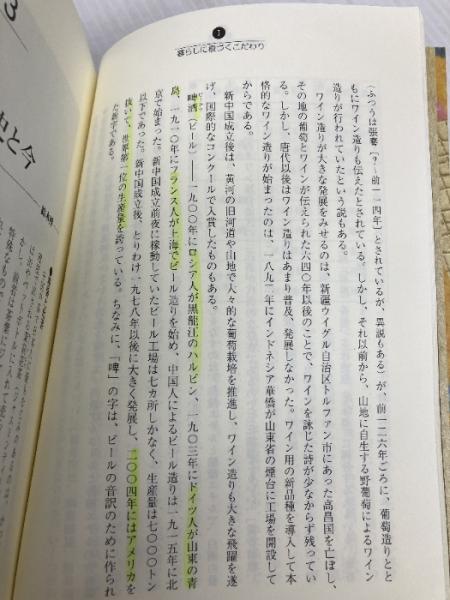 1
暮らしに根づくこだわり
(ふつうは張騫〔?~前一一四年〕とされているが、異説もある)が、前一二六年ごろに、葡萄造りとと
もにワイン造りも伝えたとされている。しかし、それ以前から、山地に自生する野葡萄によるワイン
造りが行われていたという説もある。
ワイン造りが大きな発展をみせるのは、新疆ウイグル自治区トルファン市にあった高昌国を亡ぼし、
その地の葡萄とワインが伝えられた六四〇年以後のことで、ワインを詠じた詩が少なからず残ってい
る。しかし、唐代以後はワイン造りはあまり普及、発展しなかった。ワイン用の新品種を導入して本
格的なワイン造りが始まったのは、一八九二年にインドネシア華僑が山東省の煙台に工場を開設して
からである。
新中国成立後は、黄河の旧河道や山地で大々的な葡萄栽培を推進し、ワイン造りも大きな飛躍を遂
げ、国際的なコンクールで入賞したものもある。
啤酒(ビール)——一九〇〇年にロシア人が黒龍江のハルビン、一九〇三年にドイツ人が山東の青
島、一九一〇年にフランス人が上海でビール造りを始め、中国人によるビール造りは一九一五年に北
京で始まった。新中国成立前夜に稼動していたビール工場は七カ所しかなく、生産量は七〇〇〇トン
以下であった。新中国成立後、とりわけ一九七八年以後に大きく発展し、二〇〇四年にはアメリカを
抜いて、世界第一位の生産量を誇っている。ちなみに、「啤」の字は、ビールの音訳のために作られ
た新字である。
3
と今